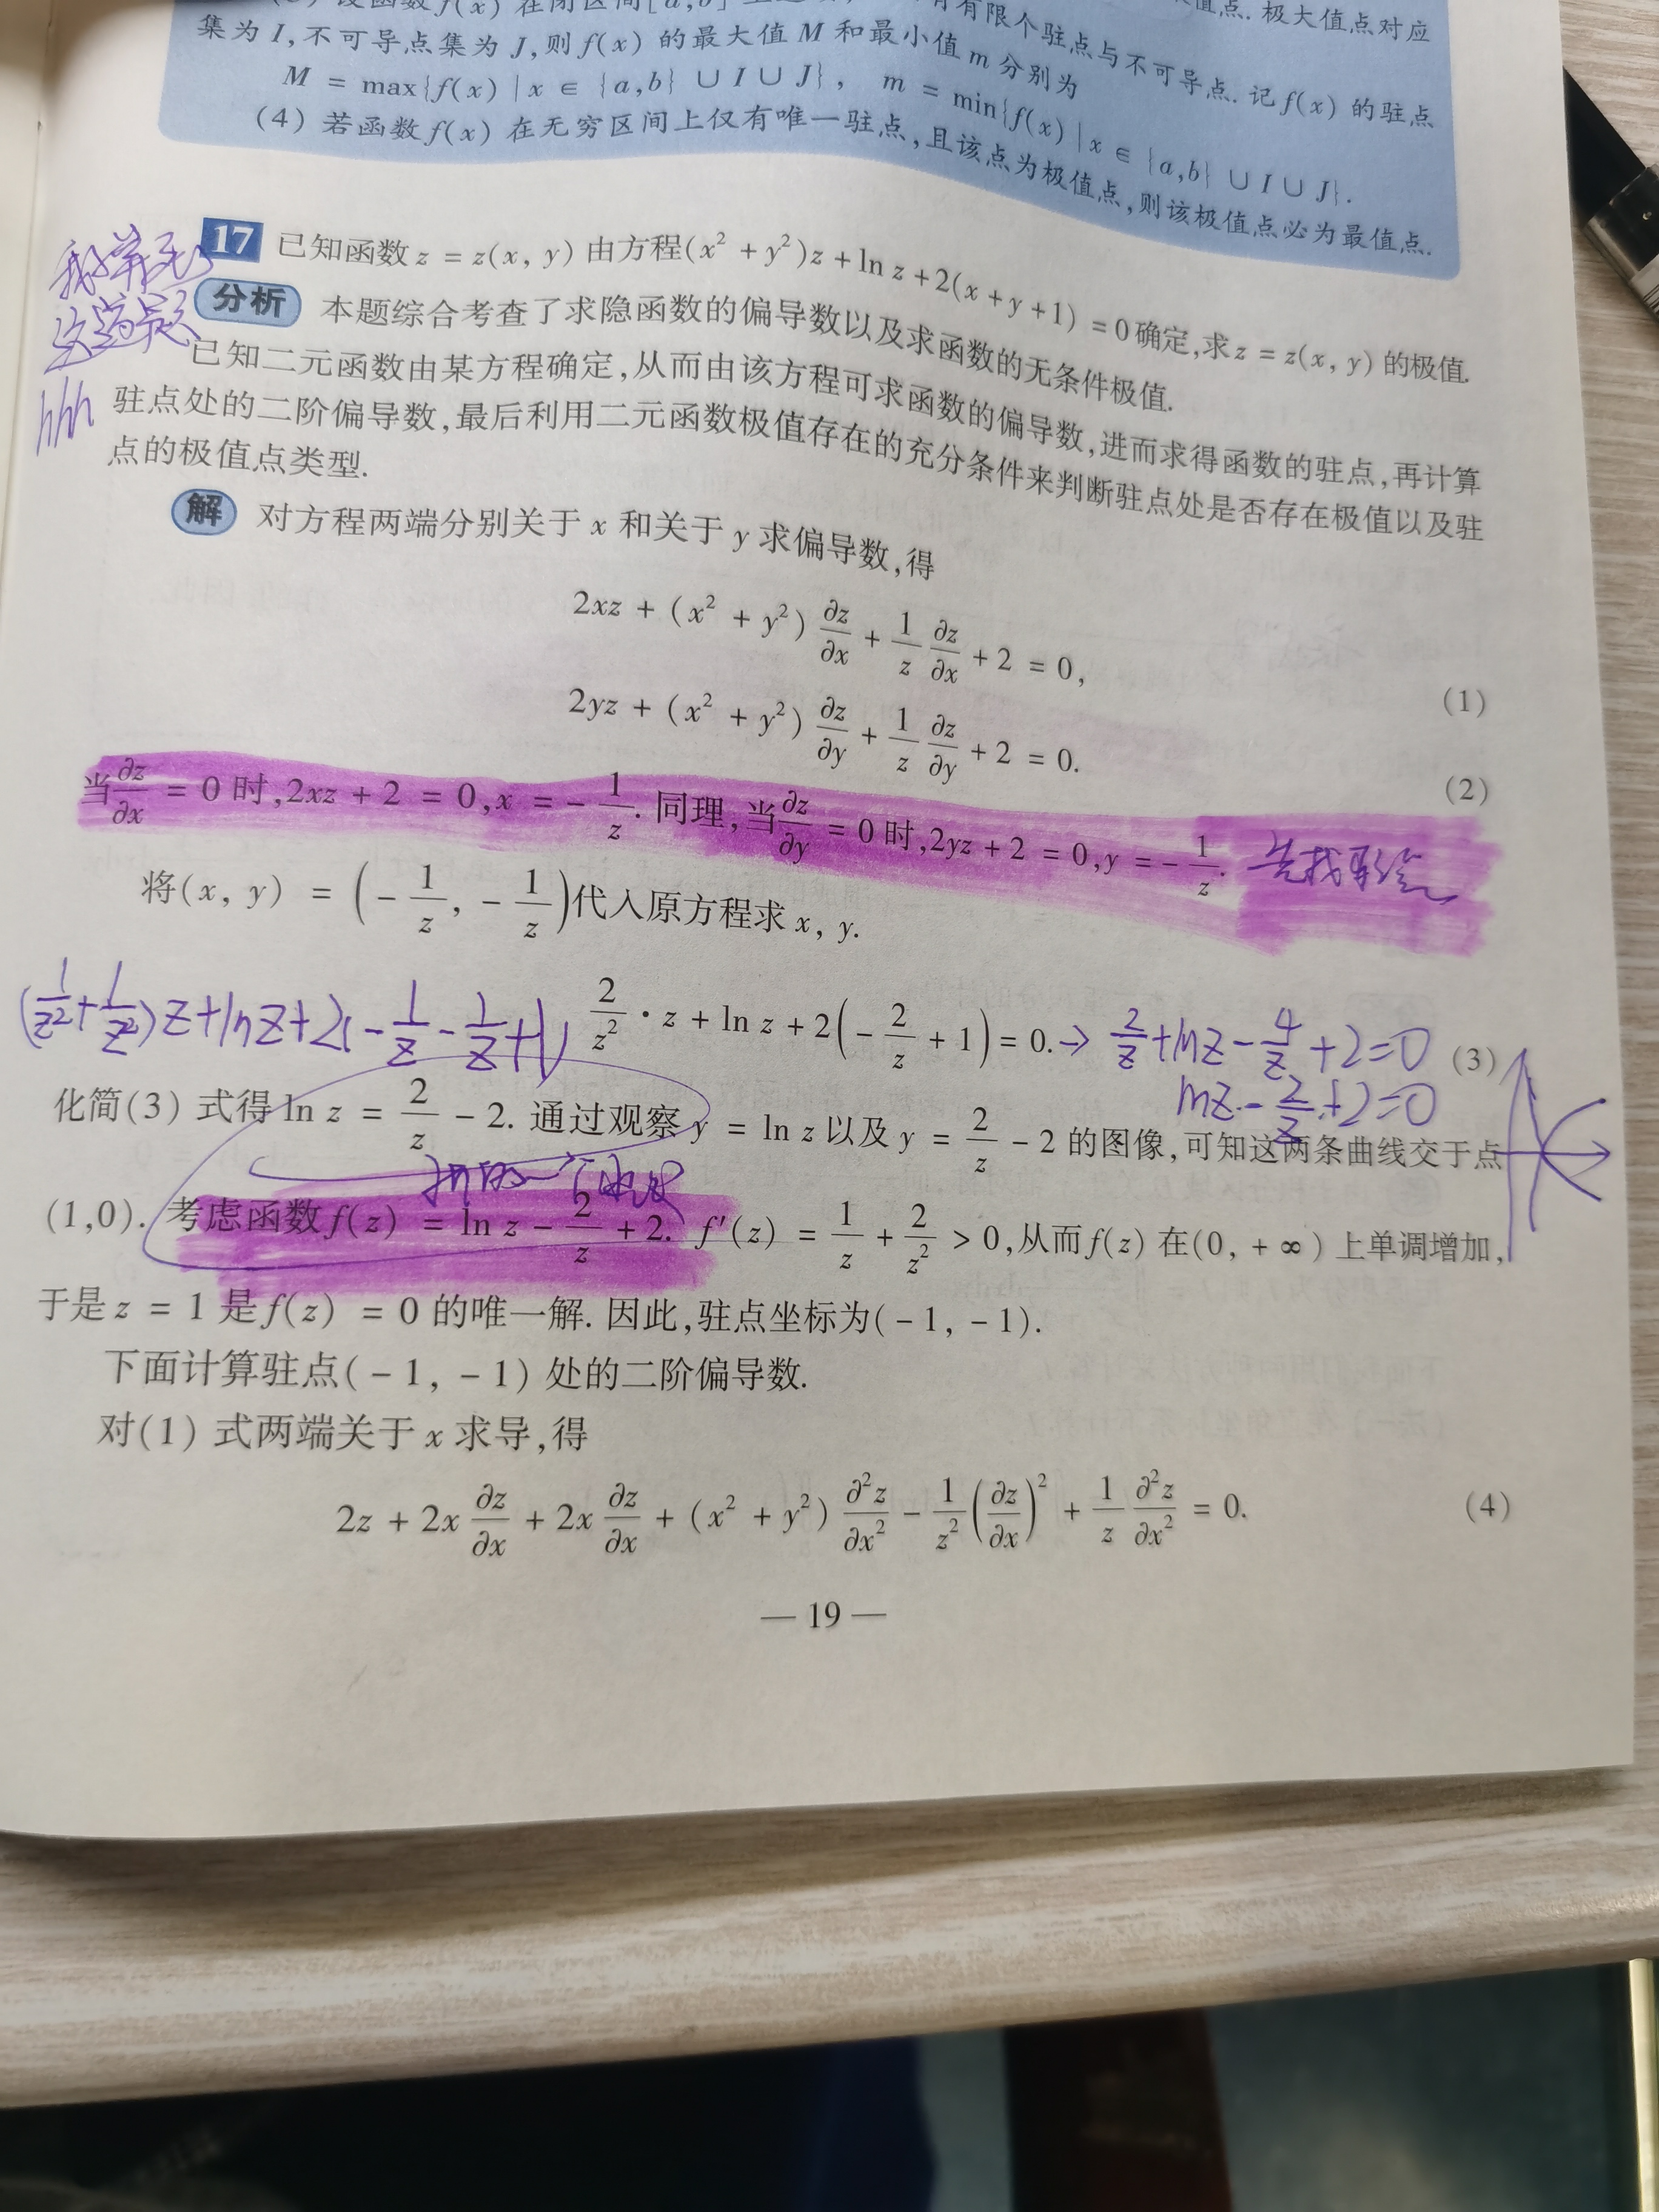 集为 I,不可导点集为 J,则 f(x) 的最大值 M 和最小值 m 分别为
有限个驻点与不可导点. 记 f(x) 的驻点
值点. 极大值点对应
M = max{f(x) | x ∈ {a,b} ∪ I ∪ J}, m = min{f(x) | x ∈ {a,b} ∪ I ∪ J}.
(4) 若函数 f(x) 在无穷区间上仅有唯一驻点,且该点为极值点,则该极值点必为最值点.
17 已知函数 z = z(x, y) 由方程(x² + y²)z + ln z + 2(x + y + 1) = 0确定,求 z = z(x, y) 的极值.
这道题
hhh
分析 本题综合考查了求隐函数的偏导数以及求函数的无条件极值.
已知二元函数由某方程确定,从而由该方程可求函数的偏导数,进而求得函数的驻点,再计算
驻点处的二阶偏导数,最后利用二元函数极值存在的充分条件来判断驻点处是否存在极值以及驻
点的极值点类型.
解 对方程两端分别关于 x 和关于 y 求偏导数,得
2xz + (x² + y²) ∂z/∂x + 1/z ∂z/∂x + 2 = 0, (1)
2yz + (x² + y²) ∂z/∂y + 1/z ∂z/∂y + 2 = 0. (2)
当 ∂z/∂x = 0 时, 2xz + 2 = 0, x = − 1/z. 同理,当 ∂z/∂y = 0 时, 2yz + 2 = 0, y = − 1/z. 先找驻点
将(x, y) = (− 1/z, − 1/z)代入原方程求 x, y.
(1/z² + 1/z²)z + ln z + 2(− 1/z − 1/z + 1)
2/z² · z + ln z + 2(− 2/z + 1) = 0. → 2/z + ln z − 4/z + 2 = 0 (3)
ln z − 2/z + 2 = 0
化简(3) 式得 ln z = 2/z − 2. 通过观察 y = ln z 以及 y = 2/z − 2 的图像,可知这两条曲线交于点
(1,0). 考虑函数 f(z) = ln z − 2/z + 2. f′(z) = 1/z + 2/z² > 0,从而 f(z) 在(0, + ∞) 上单调增加,
于是 z = 1 是 f(z) = 0 的唯一解. 因此,驻点坐标为(− 1, − 1).
下面计算驻点(− 1, − 1) 处的二阶偏导数.
对(1) 式两端关于 x 求导,得
2z + 2x ∂z/∂x + 2x ∂z/∂x + (x² + y²) ∂²z/∂x² − 1/z² (∂z/∂x)² + 1/z ∂²z/∂x² = 0. (4)
— 19 —